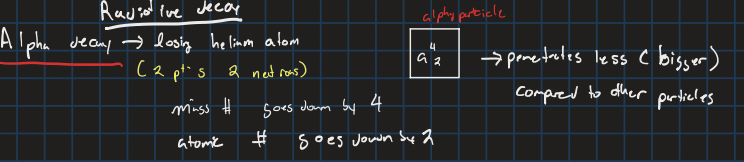 Radiotive decay
Alpha decay → losing helium atom
(2 pt s 2 netrons)
mass # goes down by 4
atomic # goes down by 2
alphy particle
a 4 2
→ penetrates less (bigger)
compared to other particles